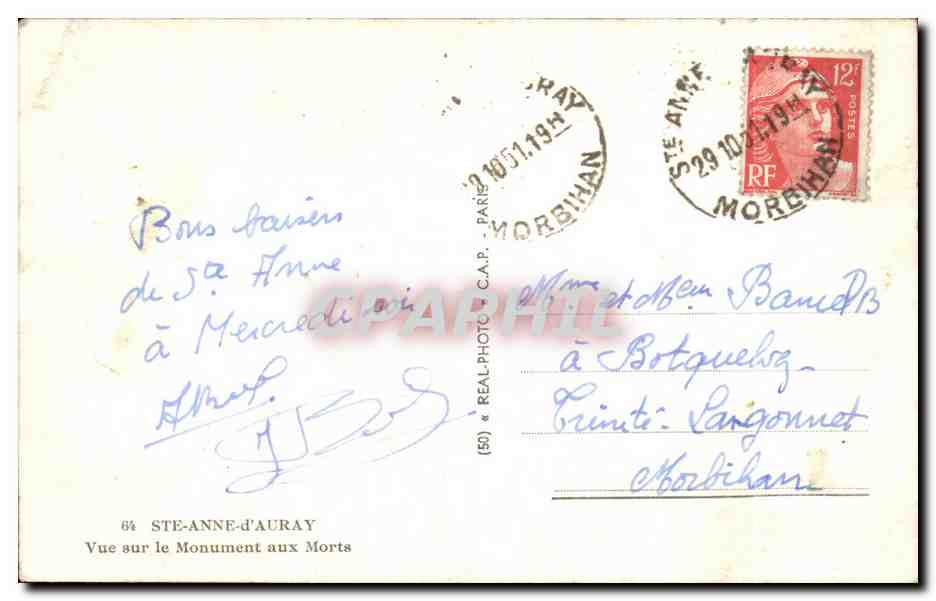 STE ANNE D'AURAY
29 10 51.19H
MORBIHAN
URAY
9 10 51.19H
MORBIHAN
12F
POSTES
RF
Bons baisers
de Ste Anne
à Mercredi soir
Mme et Meur
à
Trinité-Langonnet
Morbihan
(50) « REAL-PHOTO » C.A.P. - PARIS
CPAPHIL
64 STE-ANNE-d'AURAY
Vue sur le Monument aux Morts